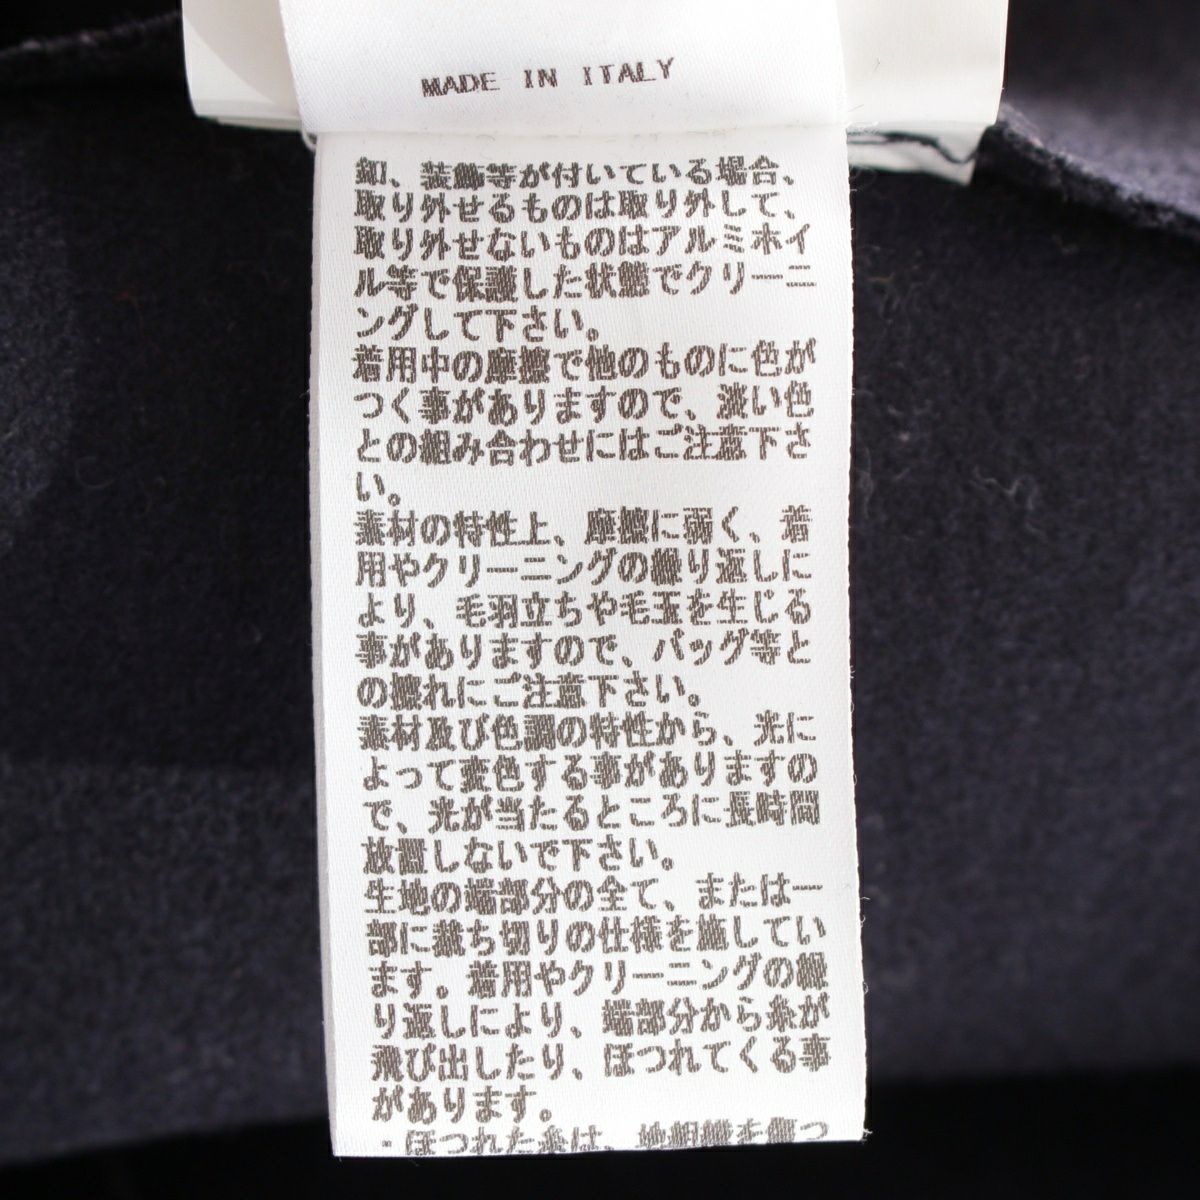 MADE IN ITALY
釦、装飾等が付いている場合、
取り外せるものは取り外して、
取り外せないものはアルミホイ
ル等で保護した状態でクリーニ
ングして下さい。
着用中の摩擦で他のものに色が
つく事がありますので、淡い色
との組み合わせにはご注意下さ
い。
素材の特性上、摩擦に弱く、着
用やクリーニングの繰り返しに
より、毛羽立ちや毛玉を生じる
事がありますので、バッグ等と
の擦れにご注意下さい。
素材及び色調の特性から、光に
よって変色する事がありますの
で、光が当たるところに長時間
放置しないで下さい。
生地の端部分の全て、または一
部に裁ち切りの仕様を施してい
ます。着用やクリーニングの繰
り返しにより、端部分から糸が
飛び出したり、ほつれてくる事
があります。
ほつれた糸は、